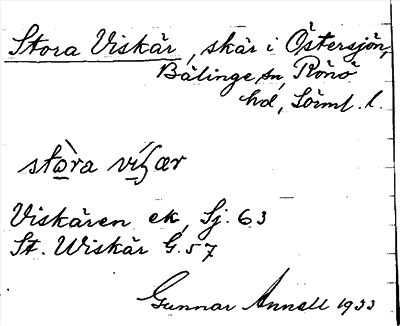 Stora Viskär, skär i Östersjön,
Bälinge sn, Rönö
hd, Sörml. l.
stò̲ra ví̲ʃær
Viskären ek, Sj. 63
St. Wiskär G. 57
Gunnar Annell 1933